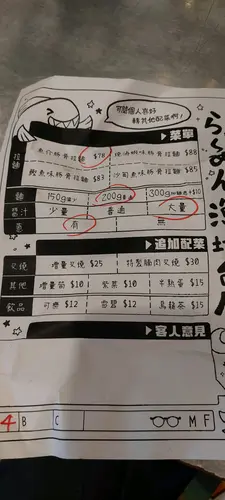 可關個人喜好
轉其他配菜啊!
▶菜單
拉麵
魚介豚骨拉麵 $78
豚骨拉麵 $88
鰹魚味豚骨拉麵 $83
沙甸魚味豚骨拉麵 $85
麵 150g 200g 300g +$10
醬汁 少量 普通 大量
蔥 有 無
▶追加配菜
叉燒 增量叉燒 $25 特製雞肉叉燒 $30
其他 增量筍 $10 紫菜 $10 半熟蛋 $15
飲品 可樂 $12 雪碧 $12 烏龍茶 $15
▶客人意見
4 B C M F